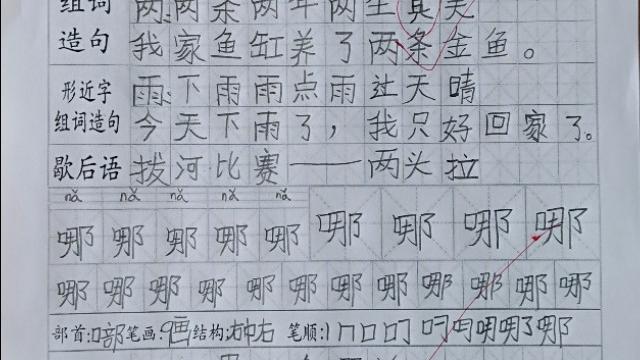 组词 两:两条 两年 两生其美
造句 我家鱼缸养了两条金鱼。
形近字组词造句 雨:下雨 雨点 雨过天晴
今天下雨了，我只好回家了。
歇后语 拔河比赛——两头拉
nǎ nǎ nǎ nǎ nǎ
哪 哪 哪 哪 哪 哪 哪 哪 哪
哪 哪 哪 哪 哪 哪 哪 哪 哪 哪 哪 哪
部首:口部 笔画:9画 结构:左中右 笔顺: